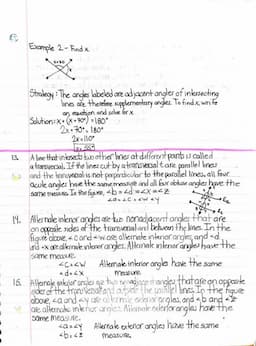 Example 2 - Find x
x+70
x
Strategy: The angles labeled are adjacent angles of intersecting
lines are therefore supplementary angles. To find x, write
an equation and solve for x
Solution: x + (x+70°) = 180°
2x + 70° = 180°
2x = 110°
x = 55°
13. A line that intersects two other lines at different points is called
a transversal. If the lines cut by a transversal are parallel lines
and the transversal is not perpendicular to the parallel lines, all four
acute angles have the same measure and all four obtuse angles have the
same measure. In the figure, <b = <d = <x = <z
<a = <c = <w = <y
14. Alternate interior angles are two nonadjacent angles that are
on opposite sides of the transversal and between the lines. In the
figure above, <c and <w are alternate interior angles, and <d
and <x are alternate interior angles. Alternate interior angles have the
same measure.
<c = <w Alternate interior angles have the same
<d = <x measure.
15. Alternate exterior angles are two nonadjacent angles that are on opposite
sides of the transversal and outside the parallel lines. In the figure
above, <a and <y are alternate exterior angles, and <b and <z
are alternate exterior angles. Alternate exterior angles have the
same measure.
<a = <y Alternate exterior angles have the same
<b = <z measure.